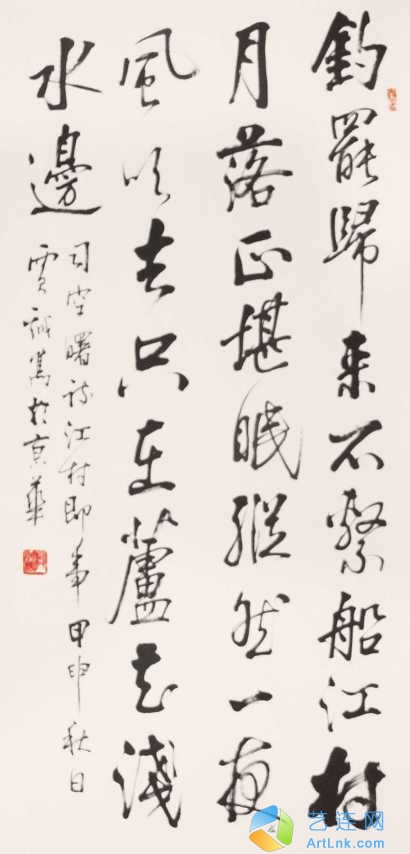 釣罷歸来不繫船江村
月落正堪眠縱然一夜
風吹去只在蘆花淺
水邊
司空曙詩江村即事甲申秋日
賈誠雋於京華
艺连网
ArtLnk.com